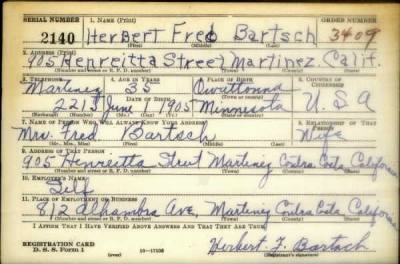 SERIAL NUMBER 1. NAME (Print) ORDER NUMBER
2140 Herbert Fred Bartsch 3409
(First) (Middle) (Last)
2. ADDRESS (Print)
905 Henreitta Street, Martinez, Calif.
(Number and street or R. F. D. number) (Town) (County) (State)
3. TELEPHONE 4. AGE IN YEARS 5. PLACE OF BIRTH 6. COUNTRY OF CITIZENSHIP
Martinez 35 Owattonna
DATE OF BIRTH (Town or county)
2215 June 1 1905 Minnesota U.S.A
(Exchange) (Number) (Mo.) (Day) (Yr.) (State or country)
7. NAME OF PERSON WHO WILL ALWAYS KNOW YOUR ADDRESS 8. RELATIONSHIP OF THAT PERSON
Mrs. Fred Bartsch Wife
(Mr., Mrs., Miss) (First) (Middle) (Last)
9. ADDRESS OF THAT PERSON
905 Henrietta Street Martinez Contra Costa California
(Number and street or R. F. D. number) (Town) (County) (State)
10. EMPLOYER'S NAME
Self
11. PLACE OF EMPLOYMENT OR BUSINESS
812 Alhambra Ave, Martinez Contra Costa California
(Number and street or R. F. D. number) (Town) (County) (State)
I AFFIRM THAT I HAVE VERIFIED ABOVE ANSWERS AND THAT THEY ARE TRUE.
REGISTRATION CARD
D. S. S. Form 1 (over) 16-17105 Herbert F. Bartsch